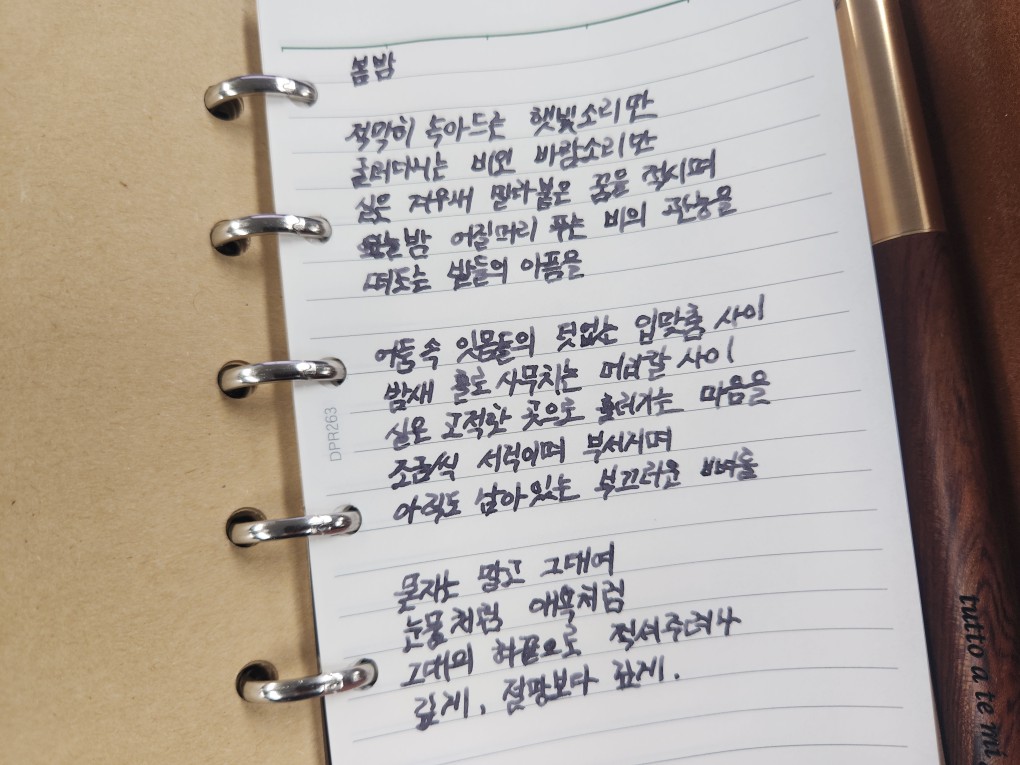 봄밤
적막히 속아드는 햇빛소리만
굴러다니는 비와 바람소리만
싶은 겨우새 말라붙은 꿈을 적시며
오늘밤 어질머리 푸는 비의 관능을
떠도는 발들의 아픔을
어둠속 잇몸들의 덧없는 입맞춤 사이
밤새 홀로 사무치는 머리칼 사이
실은 고적한 곳으로 흘러가는 마음을
조금씩 서걱이며 부서지며
아직도 남아있는 부끄러운 뼈를
묻지는 말고 그대여
눈물처럼 애욕처럼
그대의 혀끝으로 적셔주려나
깊게. 절망보다 깊게.
DPR263
tutto a te mi